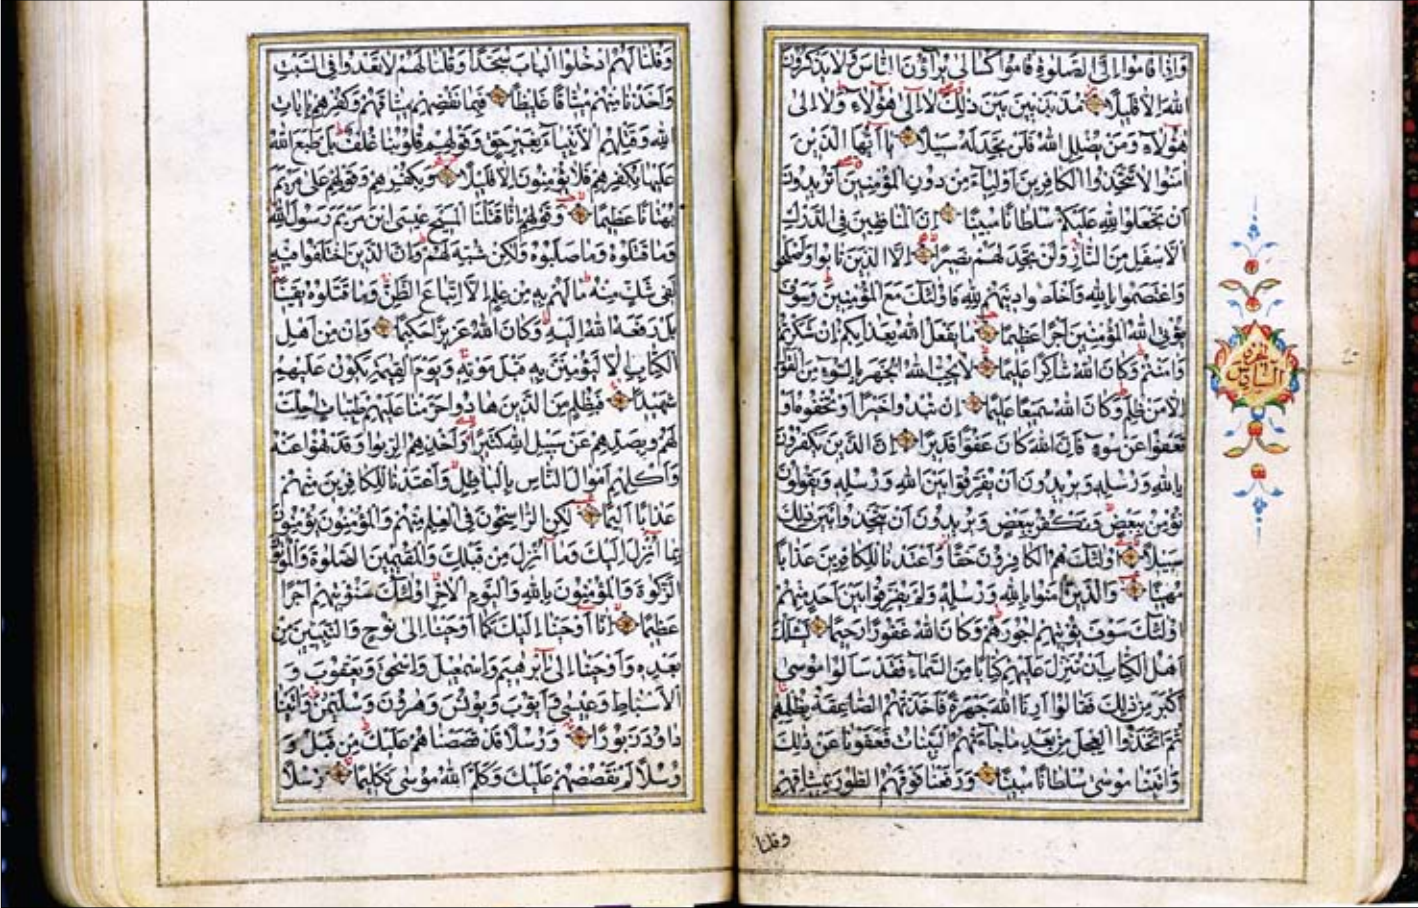 وَاِذَا قَامُوا اِلَى الصَّلٰوةِ قَامُوا كُسَالٰى يُرَآؤُنَ النَّاسَ وَلَا يَذْكُرُونَ
اللّٰهَ اِلَّا قَلِيلًا مُذَبْذَبِينَ بَيْنَ ذٰلِكَ لَا اِلٰى هٰؤُلَاءِ وَلَا اِلٰى
هٰؤُلَاءِ وَمَنْ يُضْلِلِ اللّٰهُ فَلَنْ تَجِدَ لَهُ سَبِيلًا يَا اَيُّهَا الَّذِينَ
اٰمَنُوا لَا تَتَّخِذُوا الْكَافِرِينَ اَوْلِيَاءَ مِنْ دُونِ الْمُؤْمِنِينَ اَتُرِيدُونَ
اَنْ تَجْعَلُوا لِلّٰهِ عَلَيْكُمْ سُلْطَانًا مُبِينًا اِنَّ الْمُنَافِقِينَ فِى الدَّرْكِ
الْاَسْفَلِ مِنَ النَّارِ وَلَنْ تَجِدَ لَهُمْ نَصِيرًا اِلَّا الَّذِينَ تَابُوا وَاَصْلَحُوا
وَاعْتَصَمُوا بِاللّٰهِ وَاَخْلَصُوا دِينَهُمْ لِلّٰهِ فَاُولٰئِكَ مَعَ الْمُؤْمِنِينَ وَسَوْفَ
يُؤْتِ اللّٰهُ الْمُؤْمِنِينَ اَجْرًا عَظِيمًا مَا يَفْعَلُ اللّٰهُ بِعَذَابِكُمْ اِنْ شَكَرْتُمْ
وَاٰمَنْتُمْ وَكَانَ اللّٰهُ شَاكِرًا عَلِيمًا لَا يُحِبُّ اللّٰهُ الْجَهْرَ بِالسُّوءِ مِنَ الْقَوْلِ
اِلَّا مَنْ ظُلِمَ وَكَانَ اللّٰهُ سَمِيعًا عَلِيمًا اِنْ تُبْدُوا خَيْرًا اَوْ تُخْفُوهُ اَوْ
تَعْفُوا عَنْ سُوءٍ فَاِنَّ اللّٰهَ كَانَ عَفُوًّا قَدِيرًا اِنَّ الَّذِينَ يَكْفُرُونَ
بِاللّٰهِ وَرُسُلِهِ وَيُرِيدُونَ اَنْ يُفَرِّقُوا بَيْنَ اللّٰهِ وَرُسُلِهِ وَيَقُولُونَ
نُؤْمِنُ بِبَعْضٍ وَنَكْفُرُ بِبَعْضٍ وَيُرِيدُونَ اَنْ يَتَّخِذُوا بَيْنَ ذٰلِكَ
سَبِيلًا اُولٰئِكَ هُمُ الْكَافِرُونَ حَقًّا وَاَعْتَدْنَا لِلْكَافِرِينَ عَذَابًا
مُهِينًا وَالَّذِينَ اٰمَنُوا بِاللّٰهِ وَرُسُلِهِ وَلَمْ يُفَرِّقُوا بَيْنَ اَحَدٍ مِنْهُمْ
اُولٰئِكَ سَوْفَ يُؤْتِيهِمْ اُجُورَهُمْ وَكَانَ اللّٰهُ غَفُورًا رَحِيمًا يَسْئَلُكَ
اَهْلُ الْكِتَابِ اَنْ تُنَزِّلَ عَلَيْهِمْ كِتَابًا مِنَ السَّمَاءِ فَقَدْ سَاَلُوا مُوسٰى
اَكْبَرَ مِنْ ذٰلِكَ فَقَالُوا اَرِنَا اللّٰهَ جَهْرَةً فَاَخَذَتْهُمُ الصَّاعِقَةُ بِظُلْمِهِمْ
ثُمَّ اتَّخَذُوا الْعِجْلَ مِنْ بَعْدِ مَا جَاءَتْهُمُ الْبَيِّنَاتُ فَعَفَوْنَا عَنْ ذٰلِكَ
وَاٰتَيْنَا مُوسٰى سُلْطَانًا مُبِينًا وَرَفَعْنَا فَوْقَهُمُ الطُّورَ بِمِيثَاقِهِمْ
وقلنا
وَقُلْنَا لَهُمُ ادْخُلُوا الْبَابَ سُجَّدًا وَقُلْنَا لَهُمْ لَا تَعْدُوا فِى السَّبْتِ
وَاَخَذْنَا مِنْهُمْ مِيثَاقًا غَلِيظًا فَبِمَا نَقْضِهِمْ مِيثَاقَهُمْ وَكُفْرِهِمْ بِاٰيَاتِ
اللّٰهِ وَقَتْلِهِمُ الْاَنْبِيَاءَ بِغَيْرِ حَقٍّ وَقَوْلِهِمْ قُلُوبُنَا غُلْفٌ بَلْ طَبَعَ اللّٰهُ
عَلَيْهَا بِكُفْرِهِمْ فَلَا يُؤْمِنُونَ اِلَّا قَلِيلًا وَبِكُفْرِهِمْ وَقَوْلِهِمْ عَلٰى مَرْيَمَ
بُهْتَانًا عَظِيمًا وَقَوْلِهِمْ اِنَّا قَتَلْنَا الْمَسِيحَ عِيسَى ابْنَ مَرْيَمَ رَسُولَ اللّٰهِ
وَمَا قَتَلُوهُ وَمَا صَلَبُوهُ وَلٰكِنْ شُبِّهَ لَهُمْ وَاِنَّ الَّذِينَ اخْتَلَفُوا فِيهِ
لَفِى شَكٍّ مِنْهُ مَا لَهُمْ بِهِ مِنْ عِلْمٍ اِلَّا اتِّبَاعَ الظَّنِّ وَمَا قَتَلُوهُ يَقِينًا
بَلْ رَفَعَهُ اللّٰهُ اِلَيْهِ وَكَانَ اللّٰهُ عَزِيزًا حَكِيمًا وَاِنْ مِنْ اَهْلِ
الْكِتَابِ اِلَّا لَيُؤْمِنَنَّ بِهِ قَبْلَ مَوْتِهِ وَيَوْمَ الْقِيٰمَةِ يَكُونُ عَلَيْهِمْ
شَهِيدًا فَبِظُلْمٍ مِنَ الَّذِينَ هَادُوا حَرَّمْنَا عَلَيْهِمْ طَيِّبَاتٍ اُحِلَّتْ
لَهُمْ وَبِصَدِّهِمْ عَنْ سَبِيلِ اللّٰهِ كَثِيرًا وَاَخْذِهِمُ الرِّبٰوا وَقَدْ نُهُوا عَنْهُ
وَاَكْلِهِمْ اَمْوَالَ النَّاسِ بِالْبَاطِلِ وَاَعْتَدْنَا لِلْكَافِرِينَ مِنْهُمْ
عَذَابًا اَلِيمًا لٰكِنِ الرَّاسِخُونَ فِى الْعِلْمِ مِنْهُمْ وَالْمُؤْمِنُونَ يُؤْمِنُونَ
بِمَا اُنْزِلَ اِلَيْكَ وَمَا اُنْزِلَ مِنْ قَبْلِكَ وَالْمُقِيمِينَ الصَّلٰوةَ وَالْمُؤْتُونَ
الزَّكٰوةَ وَالْمُؤْمِنُونَ بِاللّٰهِ وَالْيَوْمِ الْاٰخِرِ اُولٰئِكَ سَنُؤْتِيهِمْ اَجْرًا
عَظِيمًا اِنَّا اَوْحَيْنَا اِلَيْكَ كَمَا اَوْحَيْنَا اِلٰى نُوحٍ وَالنَّبِيِّينَ مِنْ
بَعْدِهِ وَاَوْحَيْنَا اِلٰى اِبْرٰهِيمَ وَاِسْمٰعِيلَ وَاِسْحٰقَ وَيَعْقُوبَ وَ
الْاَسْبَاطِ وَعِيسٰى وَاَيُّوبَ وَيُونُسَ وَهٰرُونَ وَسُلَيْمٰنَ وَاٰتَيْنَا
دَاوُدَ زَبُورًا وَرُسُلًا قَدْ قَصَصْنَاهُمْ عَلَيْكَ مِنْ قَبْلُ وَ
رُسُلًا لَمْ نَقْصُصْهُمْ عَلَيْكَ وَكَلَّمَ اللّٰهُ مُوسٰى تَكْلِيمًا رُسُلًا